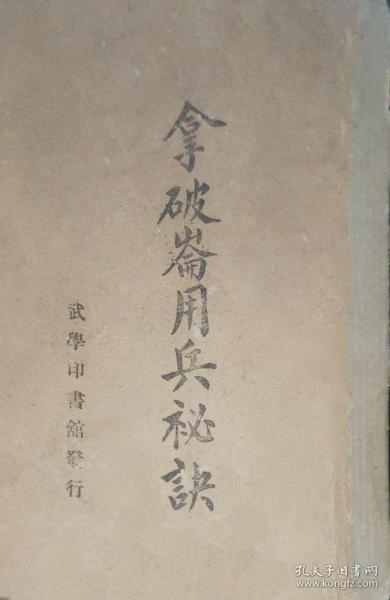 拿破崙用兵祕訣
武學印書館發行
孔夫子旧书网